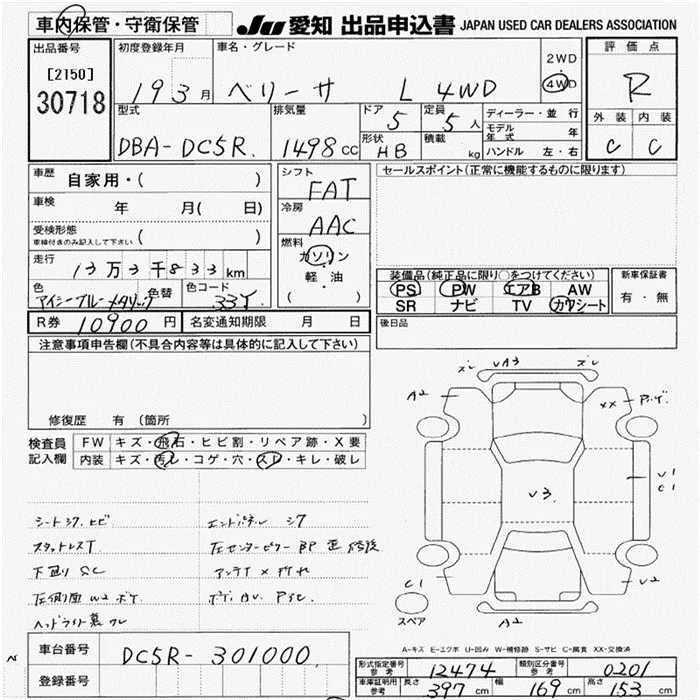 車内保管・守衛保管
JU 愛知 出品申込書 JAPAN USED CAR DEALERS ASSOCIATION
出品番号
[2150]
30718
初度登録年月
19 3 月
車名・グレード
ベリーサ L 4WD
2WD
・
4WD
評価点
R
外装 内装
C C
型式
DBA-DC5R
排気量
1498 cc
ドア
5
定員
5 人
形状
HB
積載
kg
ディーラー・並行
モデル年式 年
ハンドル 左・右
車歴
自家用・( )
車検
年 月( 日)
受検形態
車検付きのみ記入して下さい ( )
走行
13万3千833km
色
アイシーブルーメタリック
色替
色コード
33Y
R券 10900 円
名変通知期限 月 日
シフト
FAT
冷房
AAC
燃料
ガソリン
・
軽・油
( )
セールスポイント(正常に機能するものに限ります)
装備品(純正品に限り○をつけてください)
PS PW エアB AW
SR ナビ TV カワシート
新車保証書
有・無
後日品
注意事項申告欄(不具合内容等は具体的に記入して下さい)
修復歴 有 (箇所 )
検査員記入欄
FW キズ・飛石・ヒビ割・リペア跡・X要
内装 キズ・汚レ・コゲ・穴・スレ・キレ・破レ
シートシワ、ヒビ
スタッドレスT
下廻り SC
左側面 W2 ボケ
エンドパネル シワ
アンテナ × 折れ
ズレ VA3 ズレ
A2
XX
V3
V1
C1
C1
スペア
V2
A2
A-キズ E-エクボ U-凹み W-補修跡 S-サビ C-腐食 XX-交換済
車台番号
DC5R-301000
登録番号
形式指定番号
参考
12474
類別区分番号
参考
0201
車庫証明用
参考
長さ 397 cm
幅 169 cm
高さ 153 cm